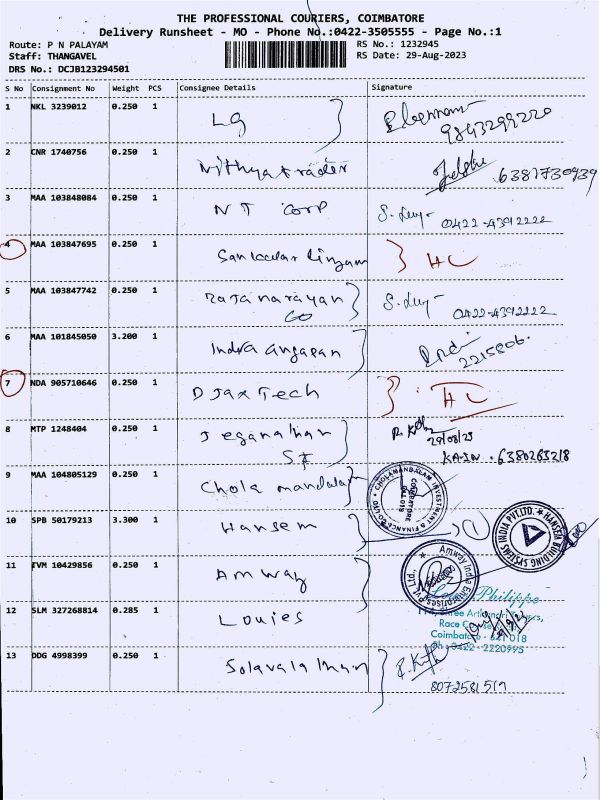 THE PROFESSIONAL COURIERS, COIMBATORE
Delivery Runsheet - MO - Phone No.:0422-3505555 - Page No.:1
Route: P N PALAYAM RS No.: 1232945
Staff: THANGAVEL RS Date: 29-Aug-2023
DRS No.: DCJB123294501
S No Consignment No Weight PCS Consignee Details Signature
1 NKL 3239012 0.250 1 LG
9843299220
2 CNR 1740756 0.250 1 Nithya trader
6381730939
3 MAA 103848084 0.250 1 NT Corp 0422-4392222
4 MAA 103847695 0.250 1 HC
5 MAA 103847742 0.250 1 Rajanarayan 0422-4392222
Co
6 MAA 101845050 3.200 1 Indra 2215806
7 NDA 905710646 0.250 1 D Jax Tech HC
8 MTP 1248404 0.250 1 Jeganathan 29/08/23
6380263218
9 MAA 104805129 0.250 1 Chola mandalam CHOLAMANDALAM INVESTMENT & FINANCE CO LTD
COIMBATORE
10 SPB 50179213 3.300 1 Hansem 1 HANSEN BUILDING SYSTEMS INDIA PVT.LTD.
11 TVM 10429856 0.250 1 Amway Amway India Enterprises Pvt. Ltd.,
12 SLM 327268814 0.285 1 Louies Louis Philippe
Race
Coimbatore - 641 018
Ph : 0422 - 2220995
13 DDG 4998399 0.250 1
8072581519